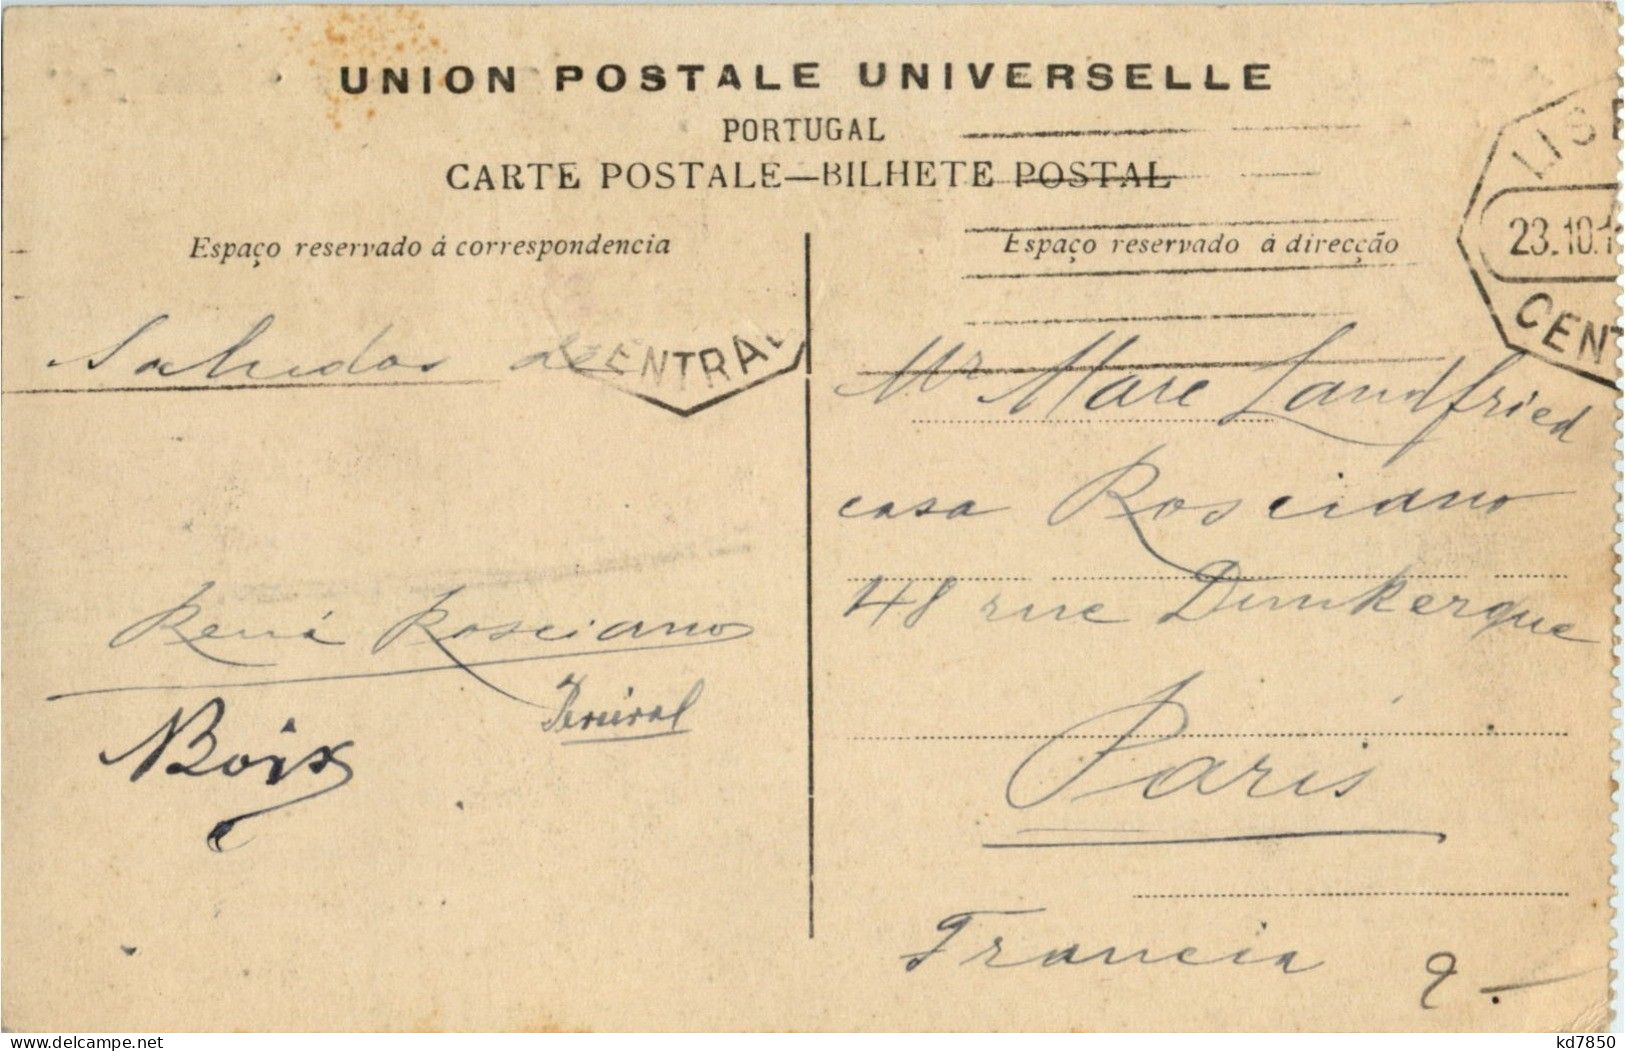 UNION POSTALE UNIVERSELLE
PORTUGAL
CARTE POSTALE—BILHETE POSTAL
Espaço reservado á correspondencia
Espaço reservado á direcção
LISB
23.10.1
CENT
CENTRAL
Saludos de
René Rosciano
Boix
Mr Marc Landfried
casa Rosciano
48 rue Dunkerque
Paris
Francia
2.—
delcampe.net
kd7850